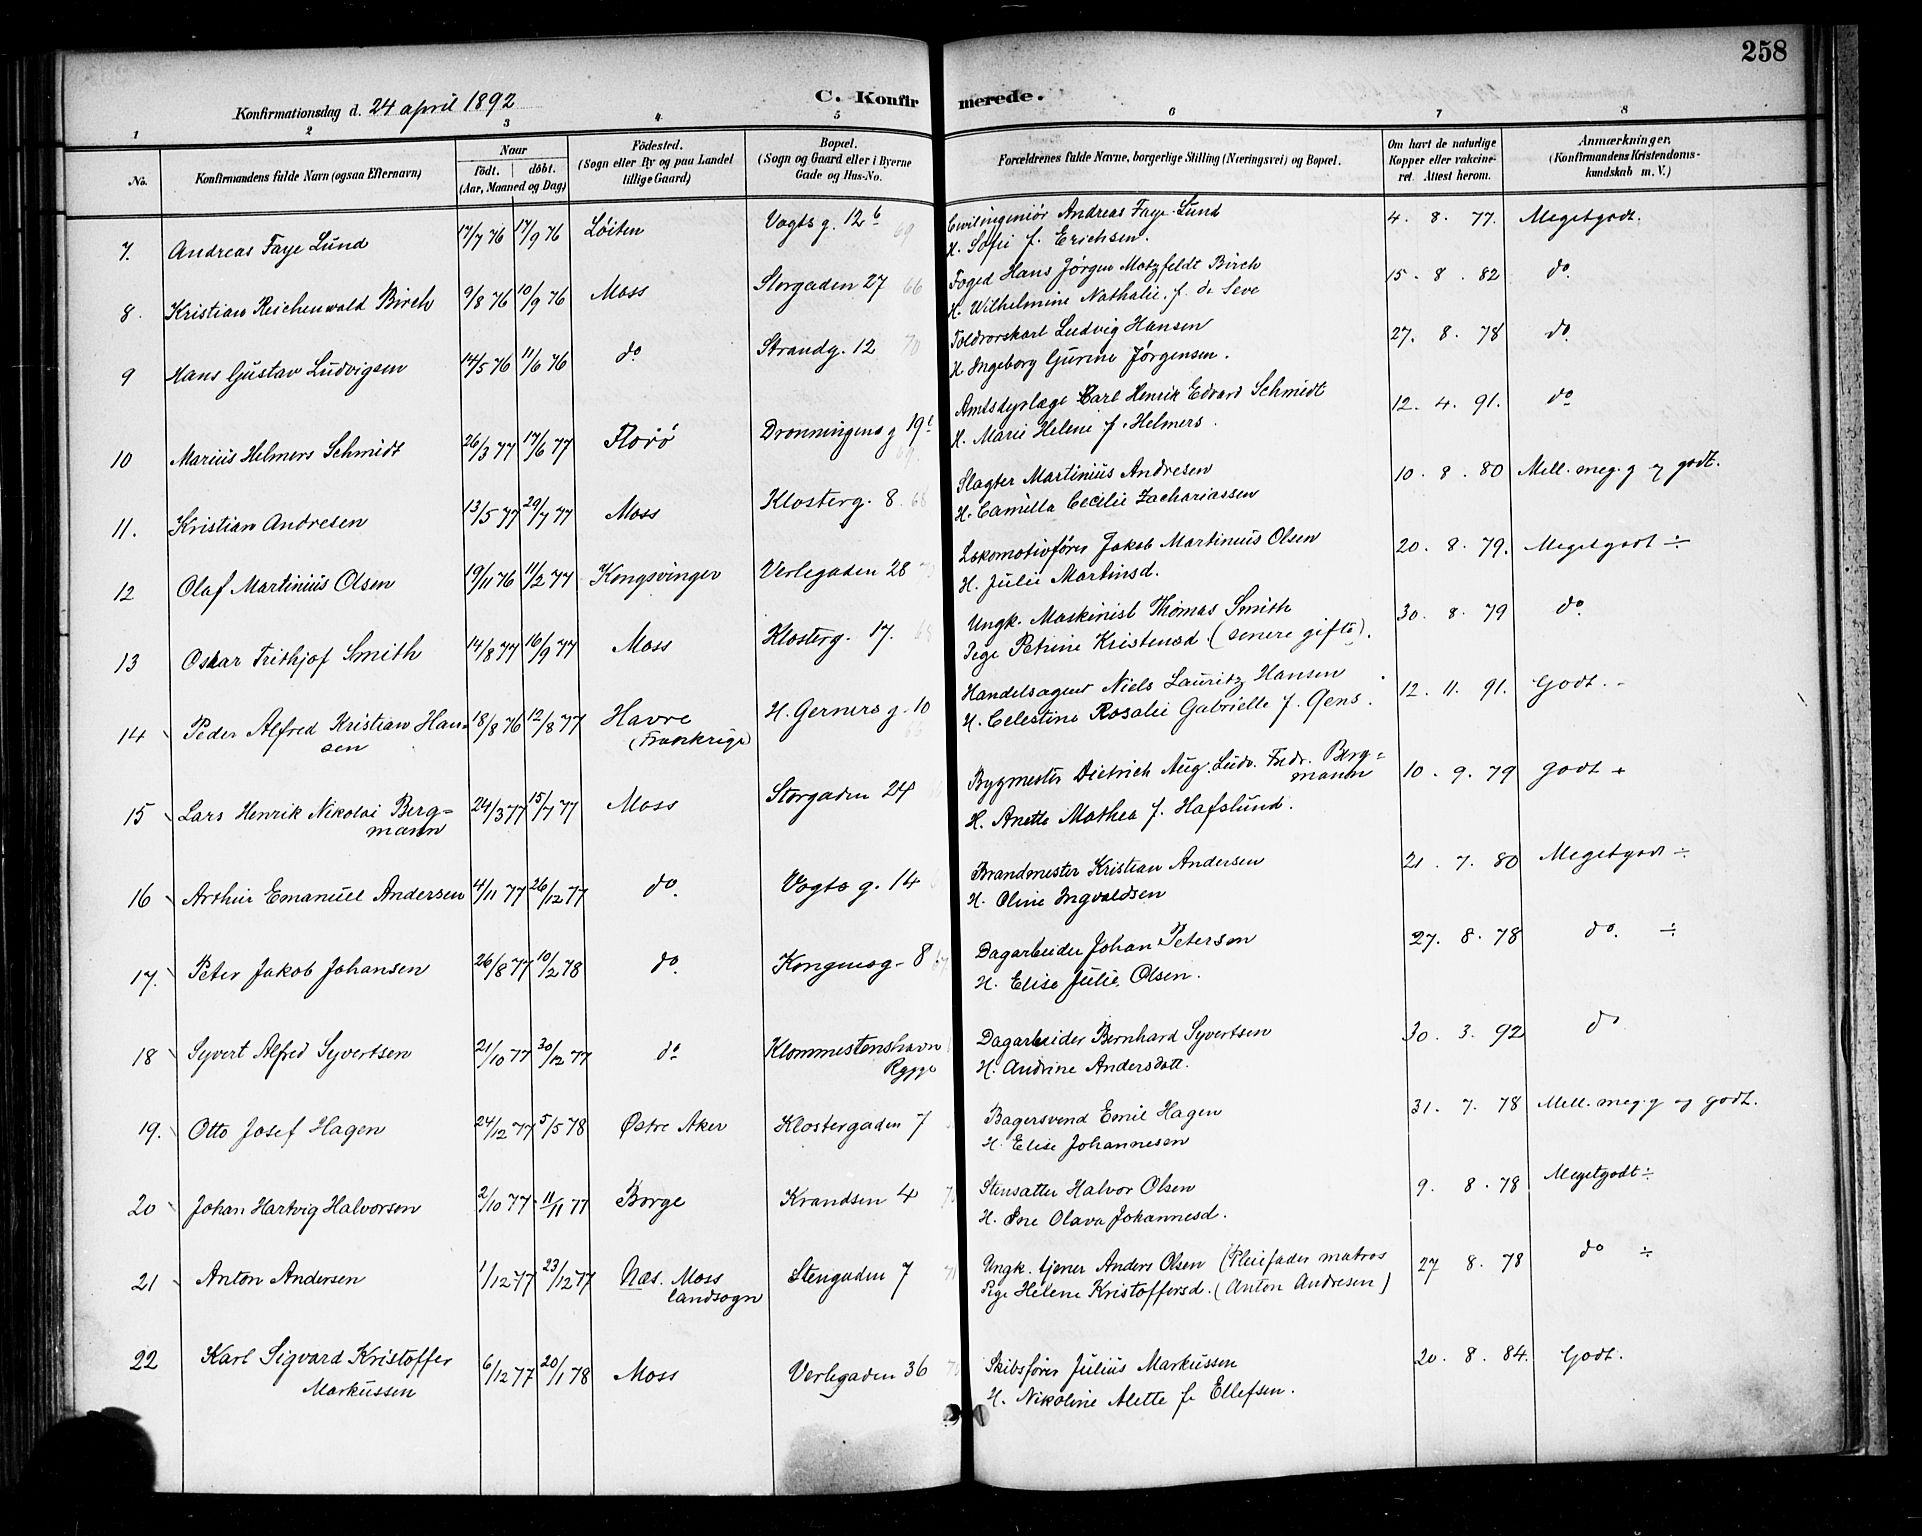 258
C. Konfirmerede.
Konfirmationsdag d. 24 april 1892
1 2 3 4 5 6 7 8
No. Konfirmandens fulde Navn (ogsaa Efternavn) Naar født. døbt. (Aar, Maaned og Dag) Fødested. (Sogn eller By og paa Landet tillige Gaard) Bopæl. (Sogn og Gaard eller i Byerne Gade og Hus-No. Forældrenes fulde Navne, borgerlige Stilling (Næringsvei) og Bopæl. Om havt de naturlige Kopper eller vakcineret. Attest herom. Anmærkninger. (Konfirmandens Kristendomskundskab m. V.)
7. Andreas Faye Lund 17/7 76 17/9 76 Løiten Vogts g. 12 b 69 Civilingeniör Andreas Faye Lund 4. 8. 77. Megetgodt.
H. Sofie f. Erichsen.
8. Kristian Reichenwald Birch 9/8 76 10/9 76 Moss Storgaden 27 66 Foged Hans Jørgen Motzfeldt Birch 15. 8. 82 do
H. Wilhelmine Nathalie f. de Seve
9 Hans Gustav Ludvigsen 14/5 76 11/6 76 do Strandg. 12 70 Toldrorskarl Ludvig Hansen 27. 8. 78 do
H. Ingeborg Gurine Jørgensen.
10 Marius Helmers Schmidt 26/3 77 17/6 77 Florø Dronningens g 19 Amtsdyrlæge Carl Henrik Edvard Schmidt 12. 4. 91. do
H. Marie Helene f. Helmers.
11. Kristian Andresen 13/5 77 29/7 77 Moss Klosterg. 8. 68 Slagter Martinius Andresen 10. 8. 80 Mell. meg. g og godt.
H. Camilla Cecilie Zachariassen
12 Olaf Martinius Olsen 19/11 76 11/2 77 Kongsvinger Verlegaden 28 Lokomotivfører Jakob Martinius Olsen 20. 8. 79. Megetgodt ÷
H. Julie Martinsd.
13 Oskar Frithjof Smith 14/8 77 16/9 77 Moss Klosterg. 17. 68 Ungk. Maskinist Thomas Smith 30. 8. 79 do
Pige Petrine Kristensd. (senere gifte).
14 Peder Alfred Kristian Hansen 18/8 76 12/8 77 Havre (Frankrige) H. Gerners g. 10 Handelsagent Niels Lauritz Hansen 12. 11. 91. Godt. -
H. Celestine Rosalie Gabrielle f. Gens.
15 Lars Henrik Nikolai Bergmann 24/3 77 15/7 77 Moss Storgaden 24 Bygmester Dietrich Aug. Ludv. Fredr. Bergmann 10. 9. 79 Godt +
H. Anette Mathea f. Hafslund.
16 Arthur Emanuel Andersen 4/11 77 26/12 77 do Vogts g. 14 Brandmester Kristian Andersen 21. 7. 80 Megetgodt ÷
H. Oline Ingvaldsen
17. Peter Jakob Johansen 26/8 77 10/2 78 do. Kongensg. 8 Dagarbeider Johan Petersen 27. 8. 78 do. ÷
H. Elise Julie Olsen.
18 Syvert Alfred Syvertsen 21/10 77 30/12 77 do Klommestenshavn Rygge Dagarbeider Bernhard Syvertsen 30. 3. 92 do
H. Andrine Andersdatt.
19. Otto Josef Hagen 24/12 77 5/5 78 Østre Aker Klostergaden 7 Bagersvend Emil Hagen 31. 7. 78 Mell. meg. g og godt.
H. Elise Johannesen
20 Johan Hartvig Halvorsen 2/10 77 11/11 77 Borge Krandsen 4 Stensætter Halvor Olsen 9. 8. 78 Megetgodt ÷
H. Ine Olava Johannesd.
21 Anton Andersen 1/12 77 23/12 77 Næs. Moss landsogn Stengaden 7 Ungk. tjener Anders Olsen (Pleiefader matros 27 8. 78 do ÷
Pige Helene Kristoffersd. (Anton Andresen)
22 Karl Sigvard Kristoffer Markussen 6/12 77 20/1 78 Moss Verlegaden 36 Skibsfører Julius Markussen 20. 8. 84. Godt.
H. Nikoline Alette f. Ellefsen.